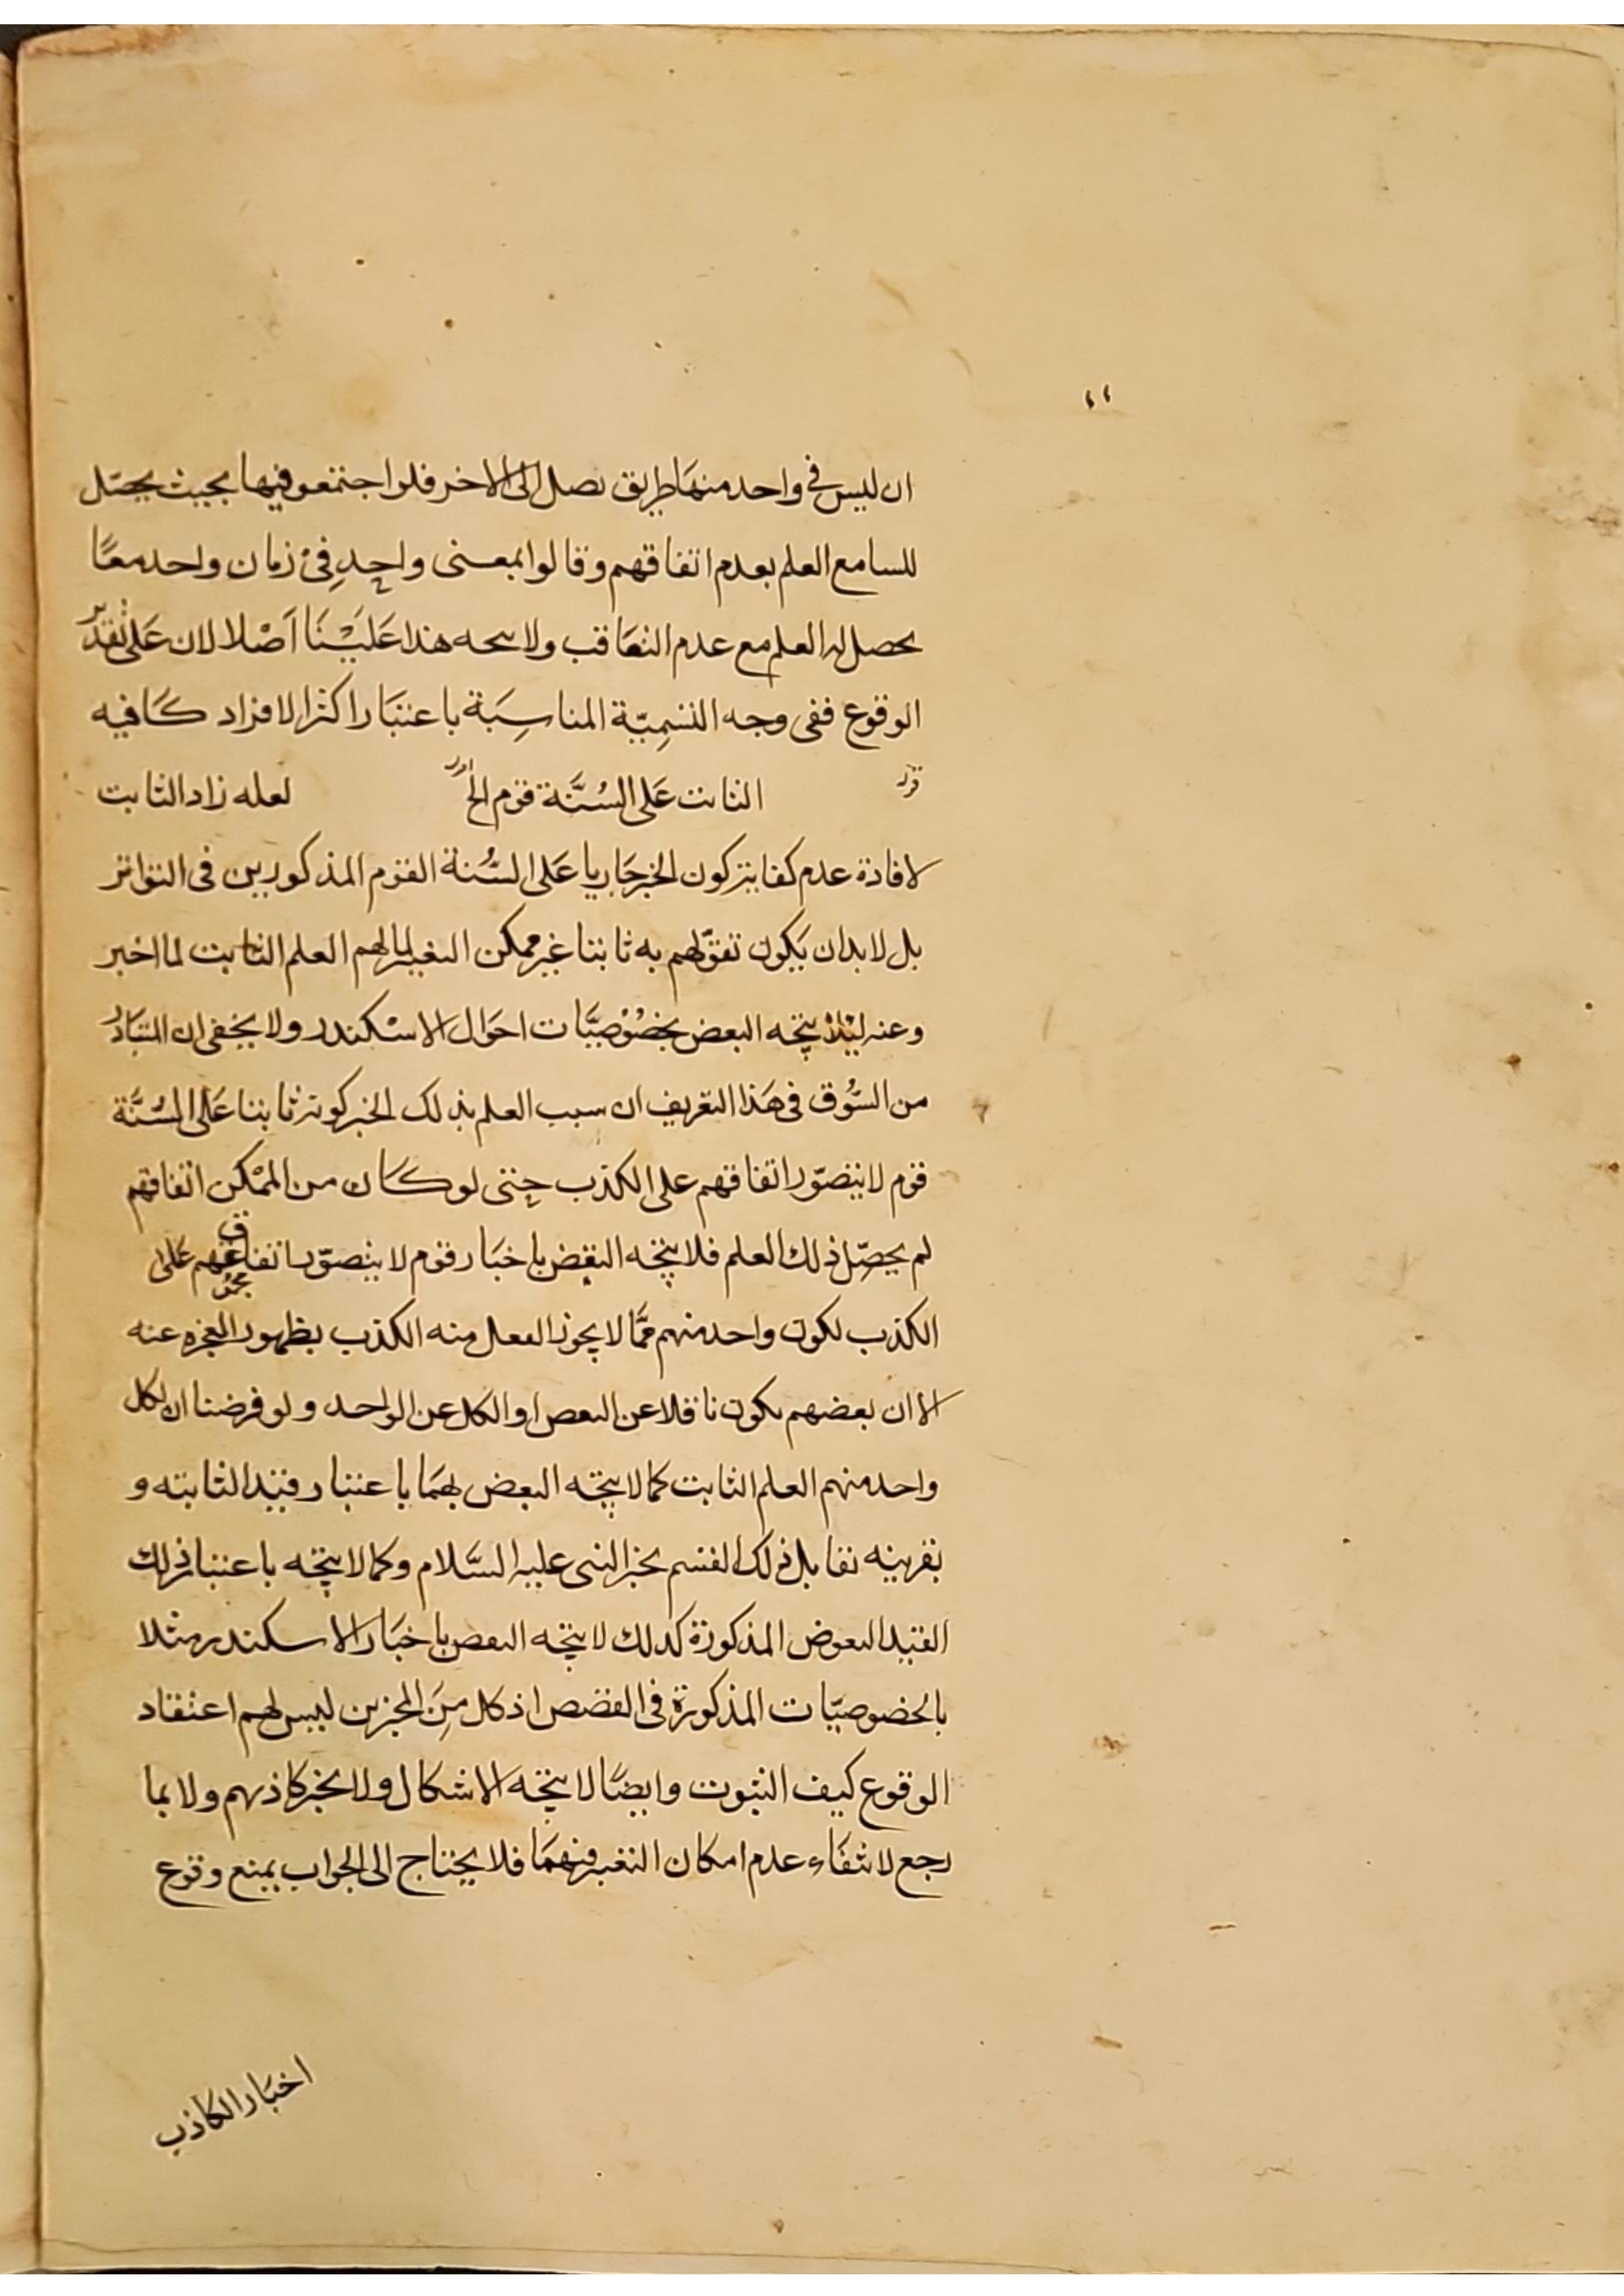 ان ليس في واحد منهما طريق يصل الى الاخر فلو اجتمعو فيها بحيث يحصل
للسامع العلم بعدم اتفاقهم وقالوا بمعنى واحدٍ فى زمان واحد معًا
يحصل له العلم مع عدم التعاقب ولا يتجه هذا عَلَيْنَا اَصْلا لان عَلى تقدير
الوقوع ففى وجه التسمِيّة المناسِبَة باعتبَار اكثر الافراد كَافيه
قوله الثابت عَلى السُنَّة قوم الخ لعله زاد الثابت
لافادة عدم كفاية كون الخبر جَاريا عَلى السُّنة القوم المذكورين فى التواتر
بل لابد ان يَكون تفوّلهم به ثابتا غير ممكن التغير لهم العلم الثابت لما اخبر
وعنه ليلا يتجه البعض بخصُوْصيَّات احوَال الاسْكندر ولا يخفى ان المتبَادر
من السُّوق فى هَذا التعريف ان سبب العلم بذلك الخبر كونه ثابتا عَلى السُنَّة
قوم لا يتصوّر اتفاقهم على الكذب حتى لو كَان من الممْكن اتفاقهم
لم يحصّل ذلك العلم فلا يتجه النقض باخبَار قوم لا يتصوّر اتفاقهم عَلى
الكذب لكون واحد منهم ممَّا لا يجوز العقل منه الكذب بظهور المعجزه عنه
الا ان بعضهم يكون ناقلا عن البعض او الكل عن الواحد ولو فرضنا ان لكل
واحد منهم العلم الثابت كما لا يتجه البعض بهمَا باعتبار قيد الثابته و
بقرينه تقابل ذلك القسم بخبر النبى عليه السَّلام وكما لا يتجه باعتبار ذلك
القيد النقوض المذكورة كذلك لا يتجه النقض باخبَار الاسكندر مثلا
بالخصوصيّات المذكورة فى القصص اذ كل مِنَ المخبرين ليس لهم اعتقاد
الوقوع كيف الثبوت وايضًا لا يتجه الاشكال ولا بخبر كاذبهم ولا بما
رجع لانتفَاء عدم امكان التغير فيهمَا فلا يحتاج الى الجواب بمنع وقوع
اخبَار الكاذب